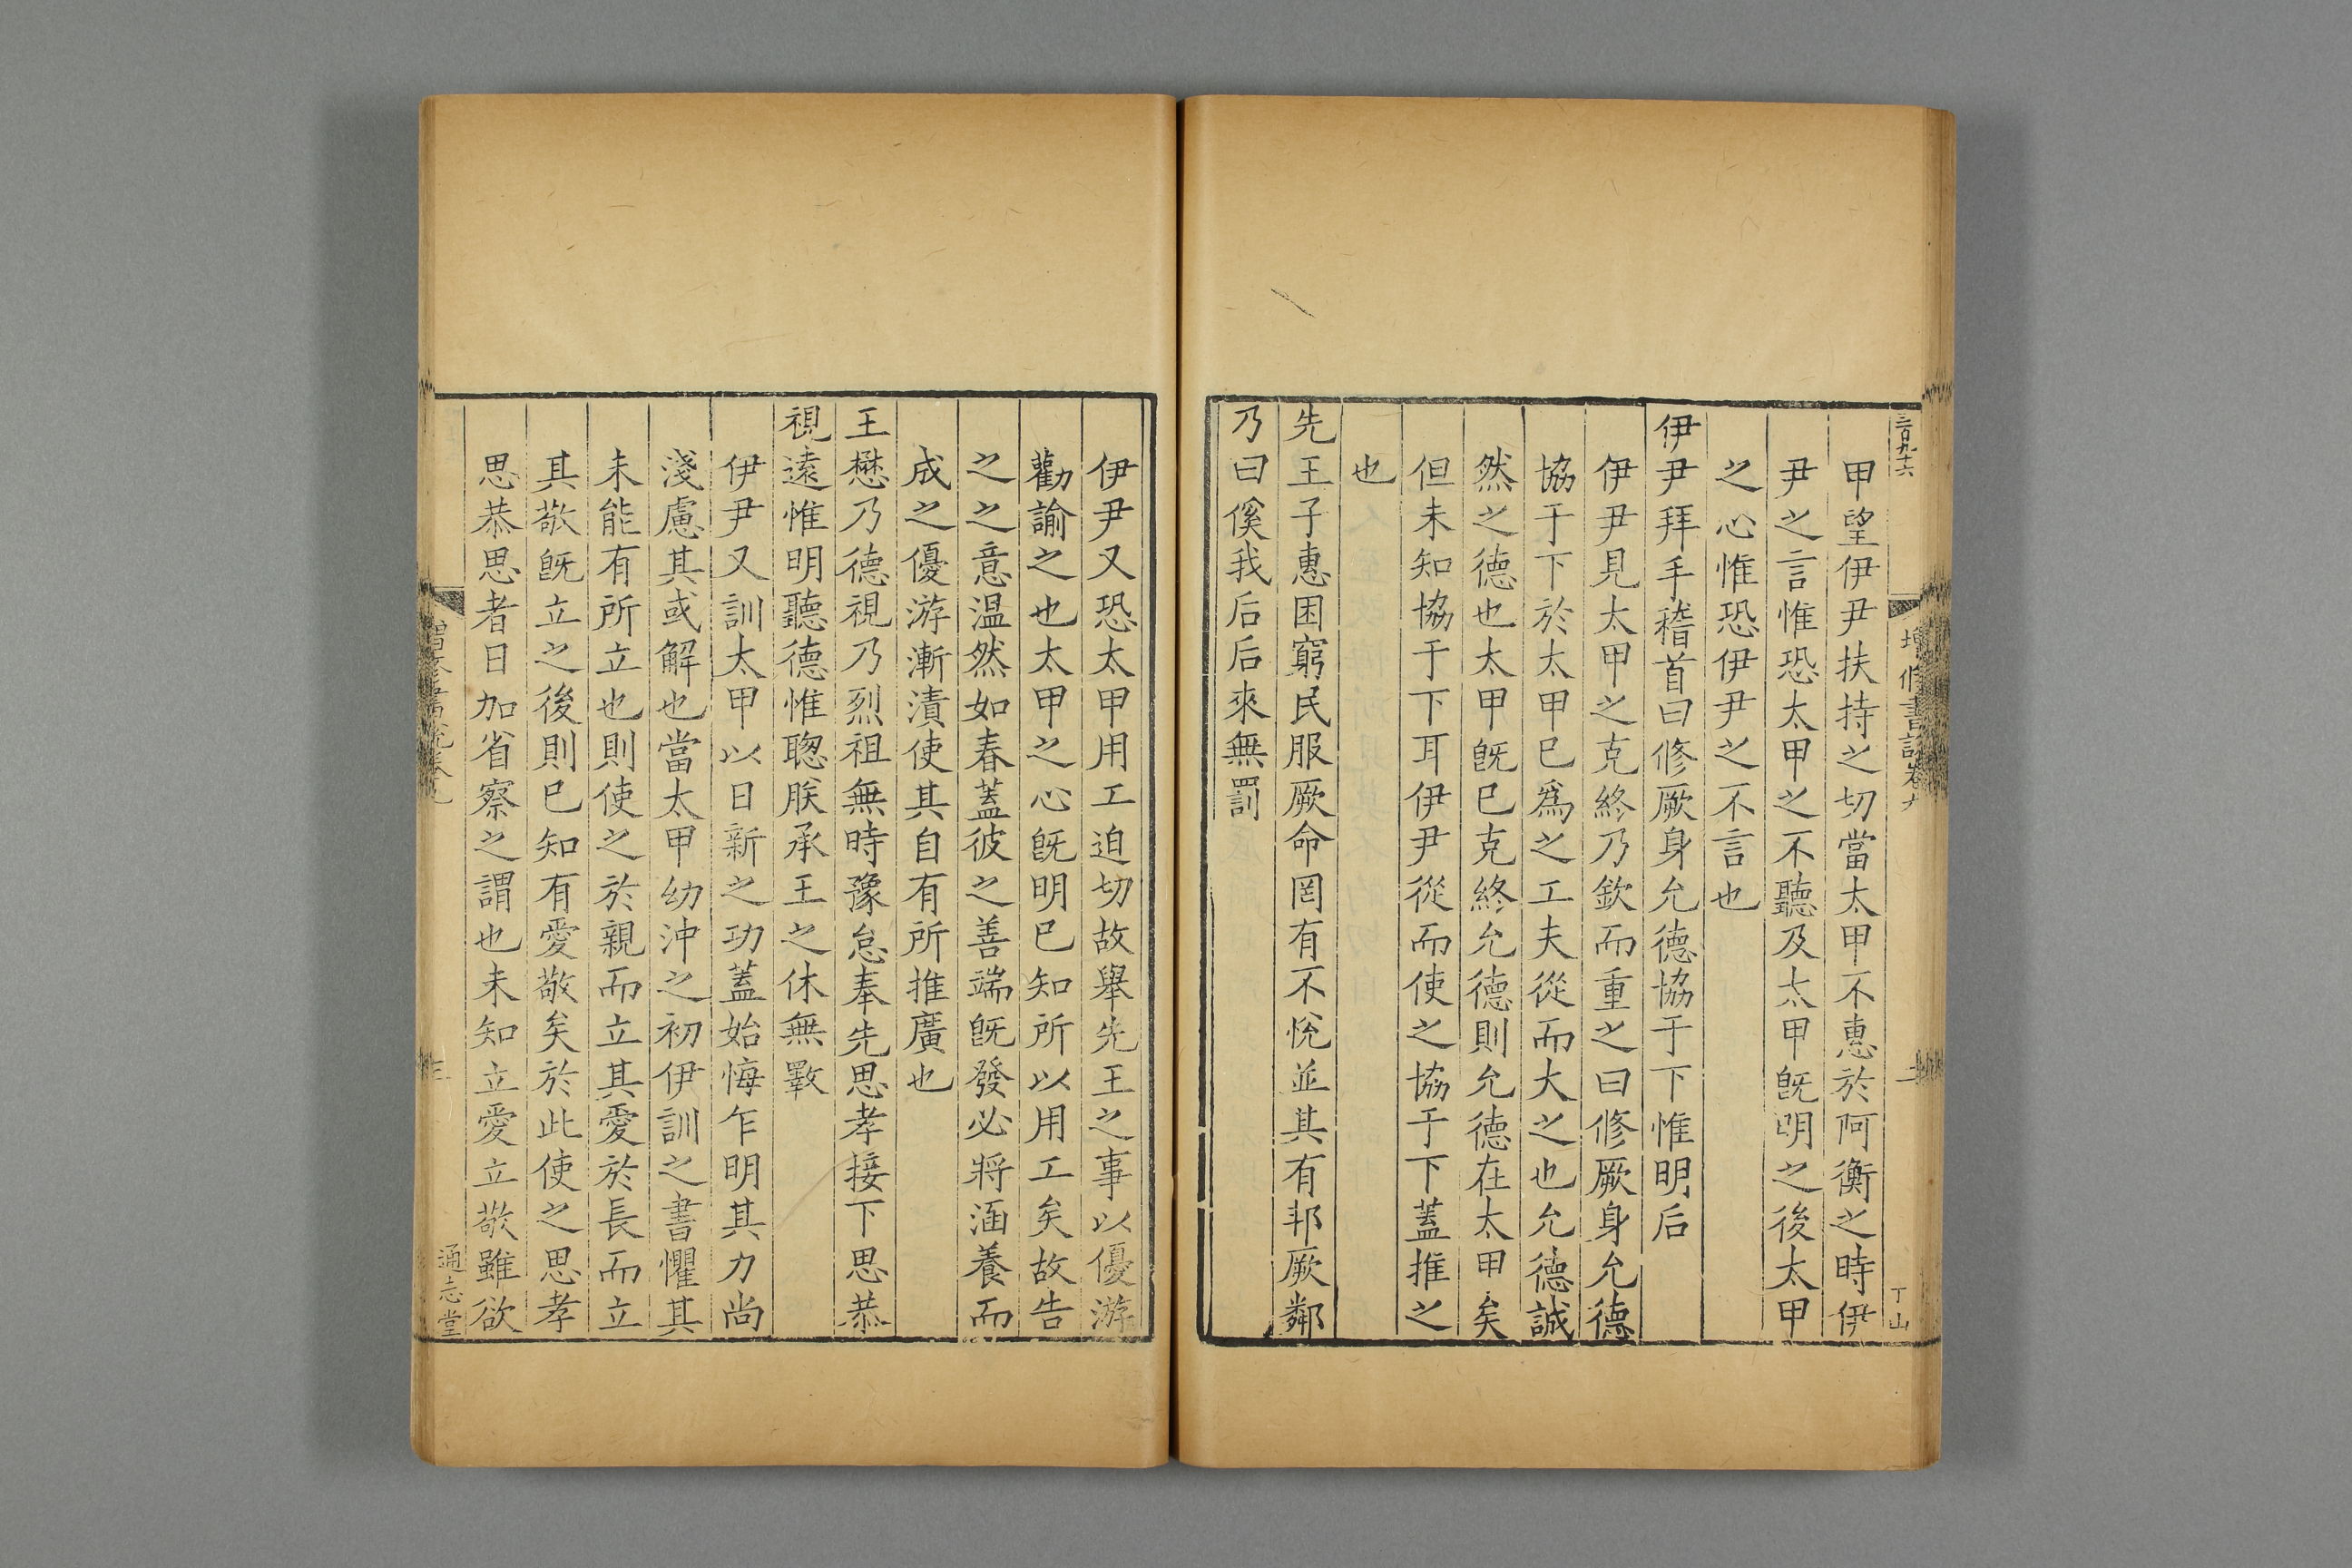 三百九十六
增修書說卷九
二
丁山
甲望伊尹扶持之切當太甲不惠於阿衡之時伊
尹之言惟恐太甲之不聽及太甲旣明之後太甲
之心惟恐伊尹之不言也
伊尹拜手稽首曰修厥身允德協于下惟明后
伊尹見太甲之克終乃欽而重之曰修厥身允德
協于下於太甲已爲之工夫從而大之也允德誠
然之德也太甲旣已克終允德則允德在太甲矣
但未知協于下耳伊尹從而使之協于下蓋推之
也
先王子惠困窮民服厥命罔有不悅並其有邦厥鄰
乃曰徯我后后來無罰
伊尹又恐太甲用工迫切故舉先王之事以優游
勸諭之也太甲之心旣明已知所以用工矣故告
之之意温然如春蓋彼之善端旣發必將涵養而
成之優游漸漬使其自有所推廣也
王懋乃德視乃烈祖無時豫怠奉先思孝接下思恭
視遠惟明聽德惟聰朕承王之休無斁
伊尹又訓太甲以日新之功蓋始悔乍明其力尚
淺慮其或解也當太甲幼沖之初伊訓之書懼其
未能有所立也則使之於親而立其愛於長而立
其敬旣立之後則已知有愛敬矣於此使之思孝
思恭思者日加省察之謂也未知立愛立敬雖欲
增修書說卷九
三
通志堂